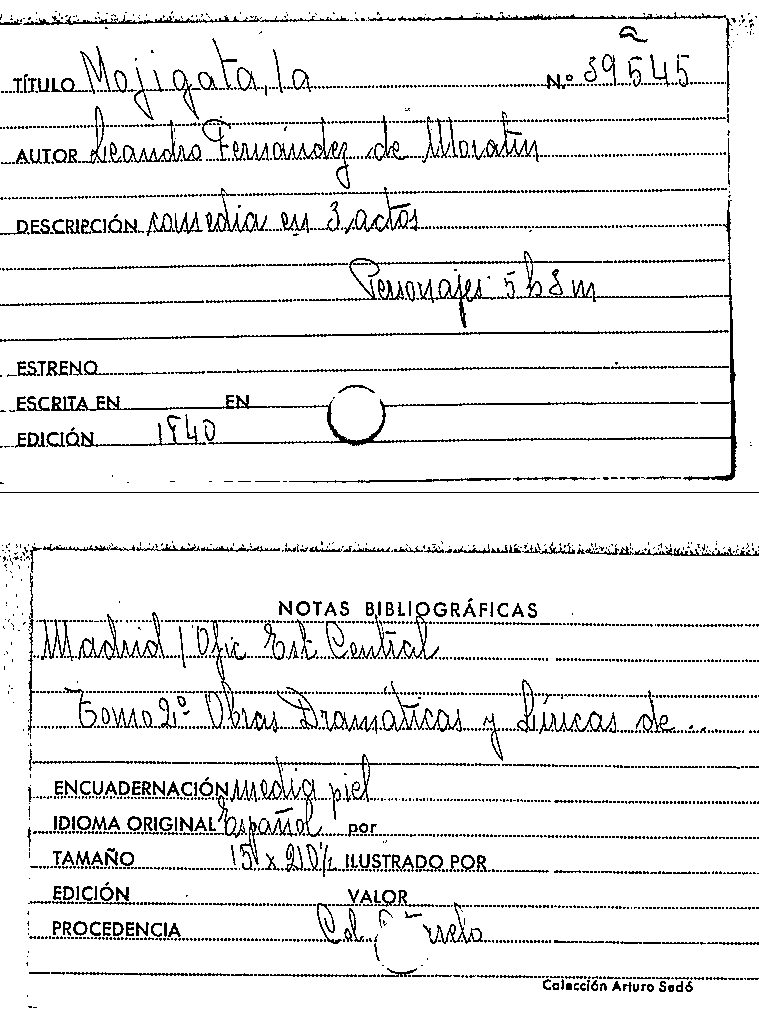 TÍTULO Mojigata, la N.º 39545
AUTOR Leandro Fernández de Moratín
DESCRIPCIÓN comedia en 3 actos
Personajes 5 h 3 m
ESTRENO
ESCRITA EN EN
EDICIÓN 1840
NOTAS BIBLIOGRÁFICAS
Madrid / Ofic Est. Central
Tomo 2º Obras Dramáticas y Líricas de ..
ENCUADERNACIÓN media piel
IDIOMA ORIGINAL Español por
TAMAÑO 15 x 210% ILUSTRADO POR
EDICIÓN VALOR
PROCEDENCIA Col.
Colección Arturo Sedó